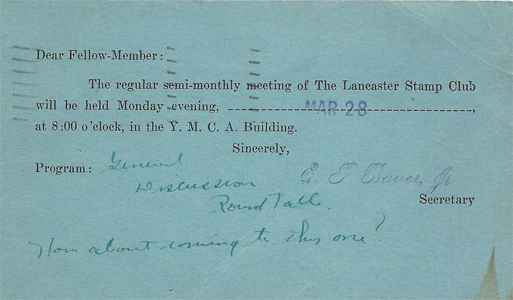 Dear Fellow-Member:
The regular semi-monthly meeting of The Lancaster Stamp Club
will be held Monday evening, MAR 28
at 8:00 o'clock, in the Y. M. C. A. Building.
Sincerely,
Program: General
Discussion
Round Table.
E. F. Jr
Secretary
How about coming to this one?